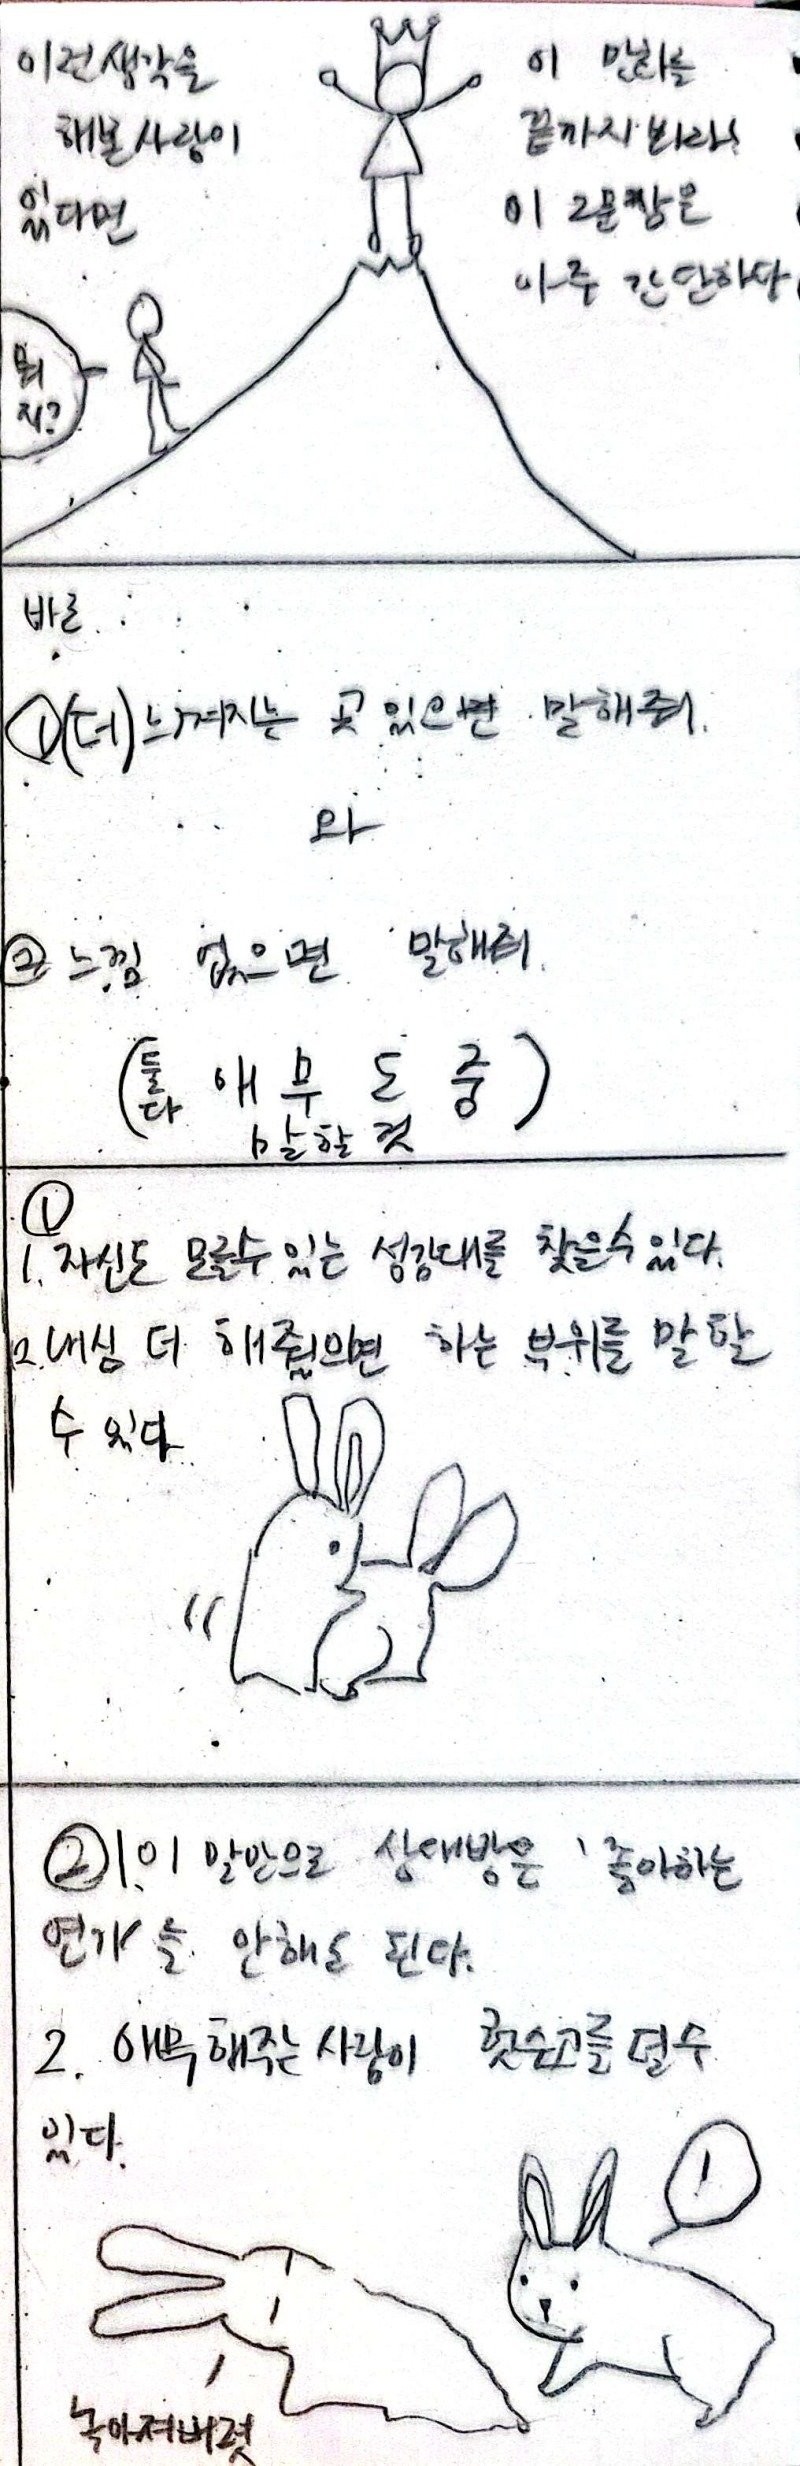 이런생각을
해본사람이
있다면
이 만화를
끝까지봐라!
이 2문장은
아주 간단하다
뭐
지?
바로
①(더)느껴지는 곳있으면 말해줘.
와
②느낌 없으면 말해줘.
(둘다 애무도중)
말할 것
①
1. 자신도 모를수 있는 성감대를 찾을수있다.
2. 내심 더 해줬으면 하는 부위를 말할
수 있다.
② 1. 이 말만으로 상대방은 '좋아하는
연기'를 안해도 된다.
2. 애무해주는사람이 헛수고를 덜수
있다.
!
녹아져버렷